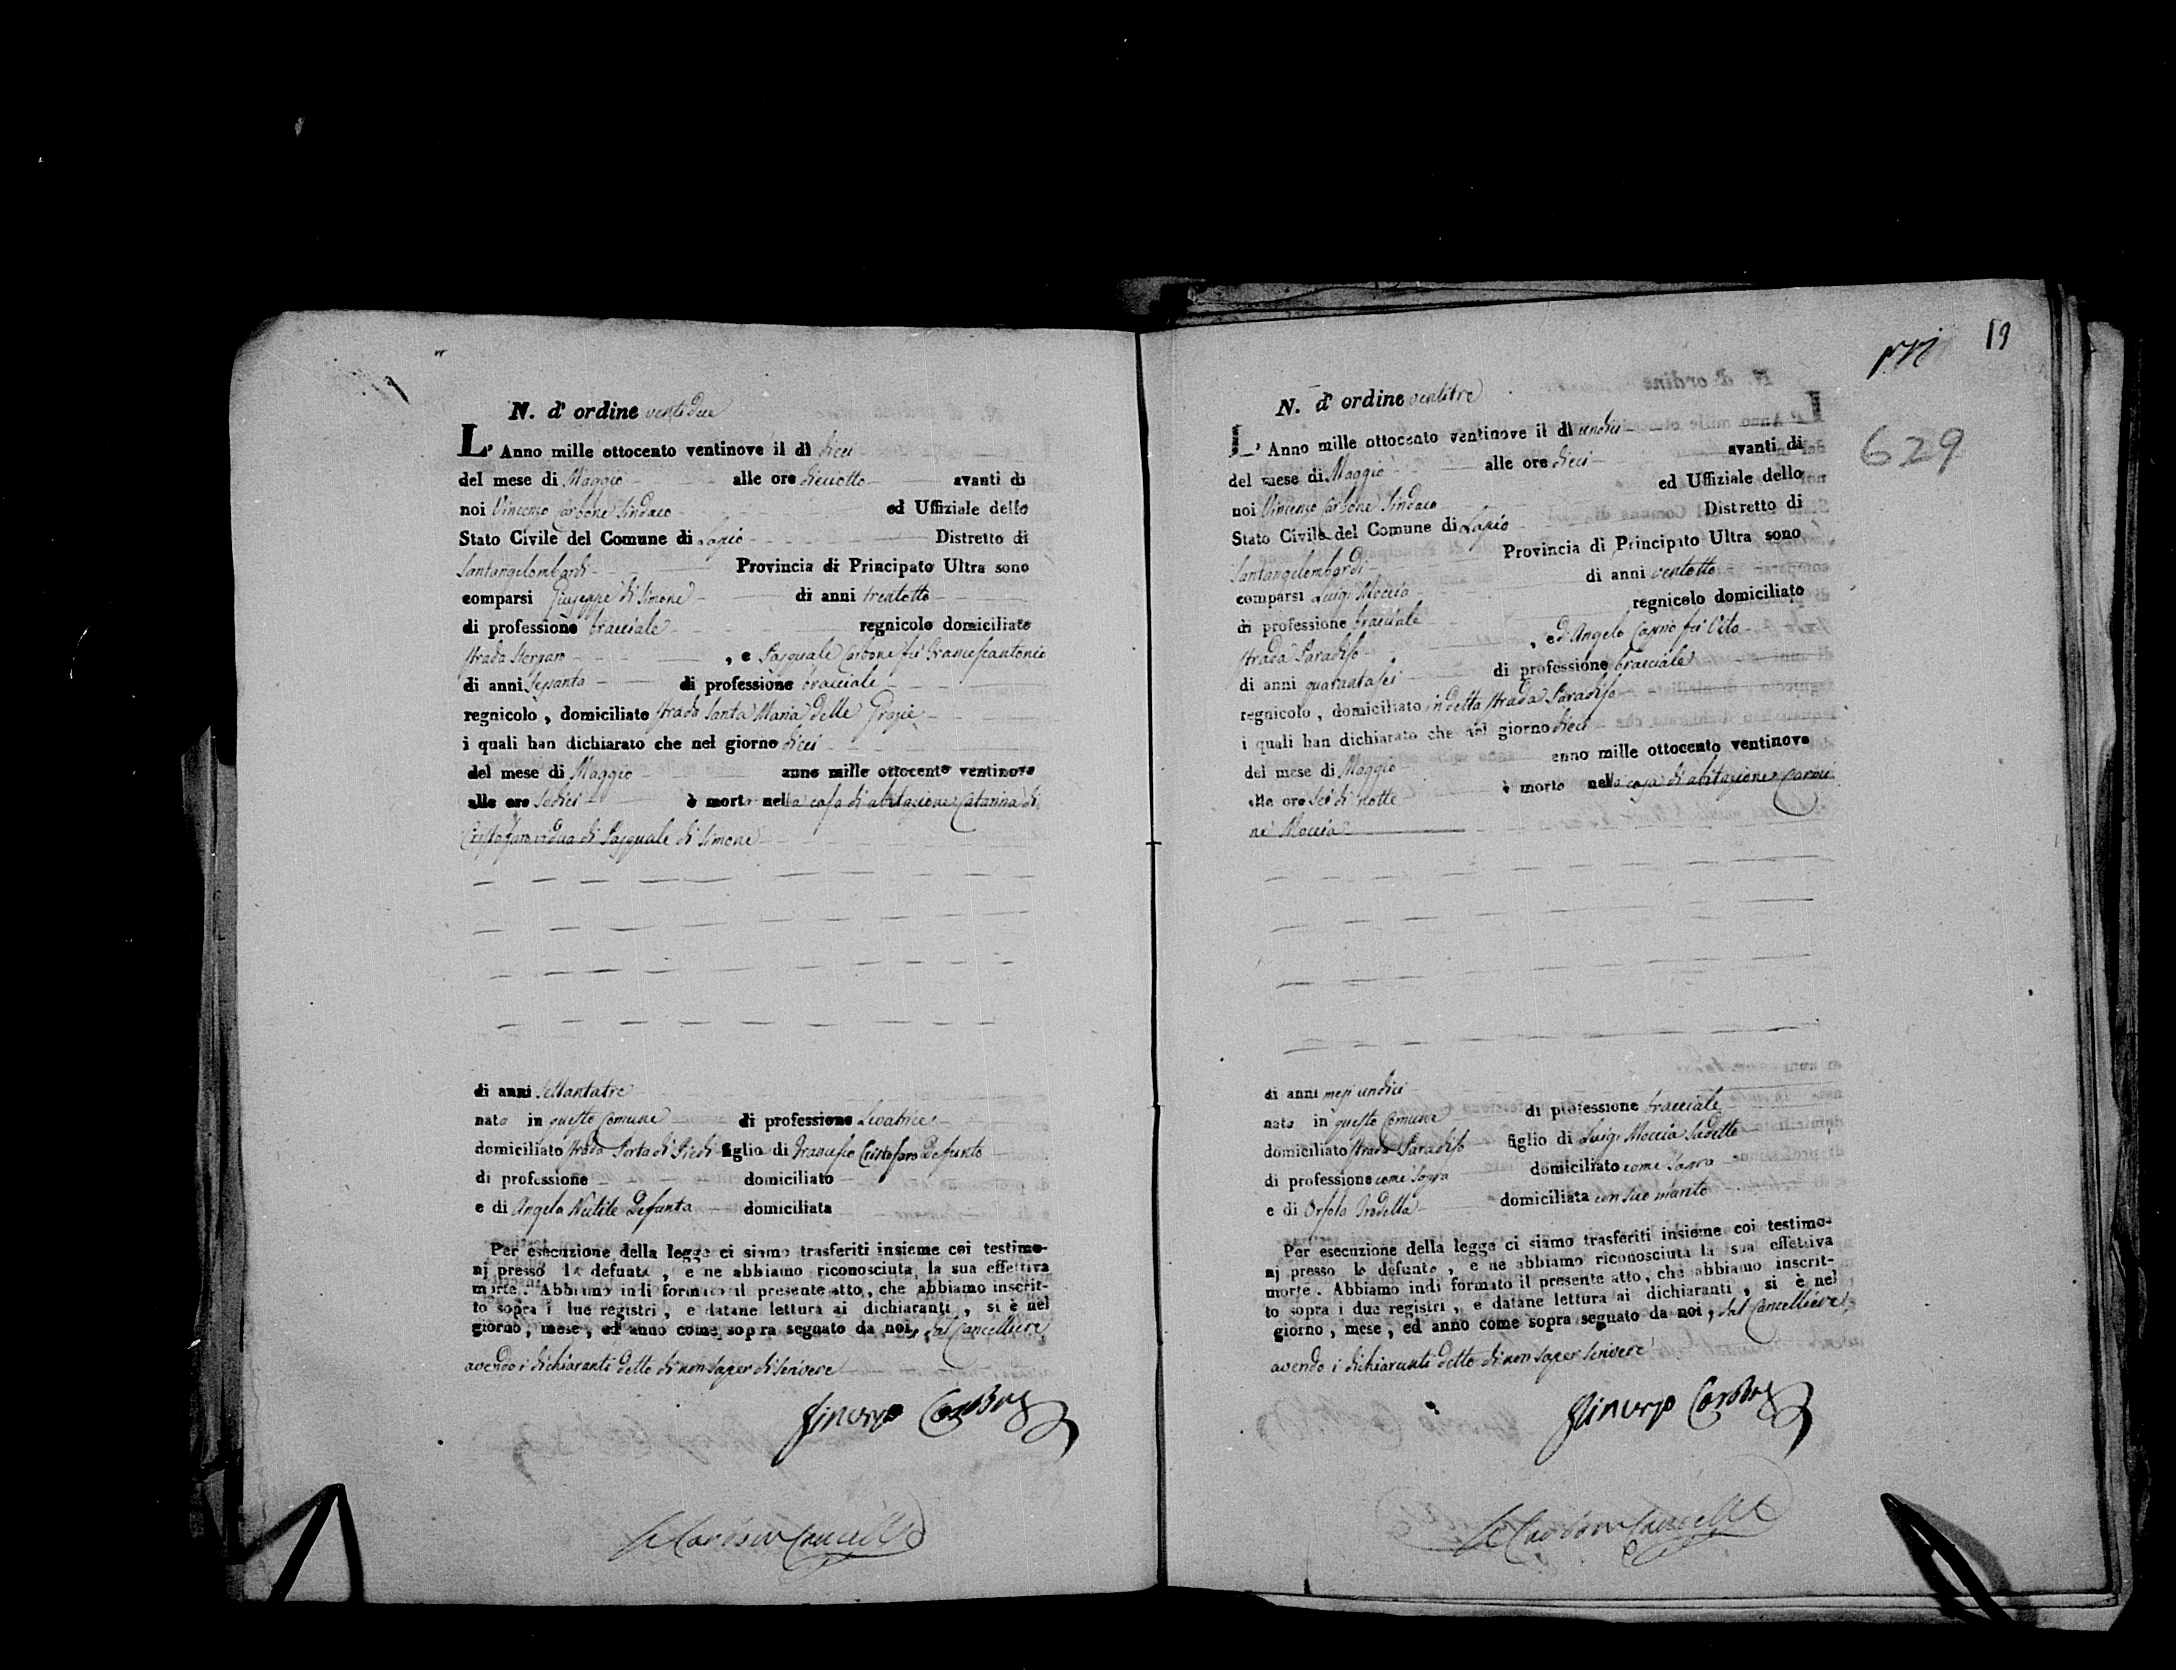 N. d' ordine ventidue
L' Anno mille ottocento ventinove il dì dieci
del mese di Maggio alle ore dieciotto avanti di
noi Vincenzo Carbone Sindaco ed Uffiziale dello
Stato Civile del Comune di Lapio Distretto di
Santangelombardi Provincia di Principato Ultra sono
comparsi Giuseppe di Simone di anni trentotto
di professione bracciale regnicolo domiciliato
strada , e Pasquale Carbone fu Francescantonio
di anni sessanta di professione bracciale
regnicolo , domiciliato strada Santa Maria delle Grazie
i quali han dichiarato che nel giorno dieci
del mese di Maggio anno mille ottocento ventinove
alle ore sedici è morta nella casa di abitazione Catarina di
Cristofaro vedua di Pasquale di Simone
di anni settantatre
nata in questo Comune di professione Levatrice
domiciliato strada Porta di Piedi figlia di Francesco Cristofaro Defunto
di professione domiciliato
e di Angela Defunta domiciliata
Per esecuzione della legge ci siamo trasferiti insieme coi testimo-
nj presso la defunta , e ne abbiamo riconosciuta la sua effettiva
morte . Abbiamo indi formato il presente atto , che abbiamo inscrit-
to sopra i due registri , e datane lettura ai dichiaranti , si è nel
giorno , mese , ed anno come sopra segnato da noi, dal Cancelliere
avendo i dichiaranti detto di non saper di scrivere
Vincenzo Carbone
19
629
N. d' ordine ventitre
L' Anno mille ottocento ventinove il dì undici
del mese di Maggio alle ore dieci avanti di
noi Vincenzo Carbone Sindaco ed Uffiziale dello
Stato Civile del Comune di Lapio Distretto di
Santangelombardi Provincia di Principato Ultra sono
comparsi Luigi Moccia di anni ventotto
di professione bracciale regnicolo domiciliato
strada Paradiso , ed Angelo fu Vito
di anni quarantasei di professione bracciale
regnicolo , domiciliato in detta strada Paradiso
i quali han dichiarato che nel giorno dieci
del mese di Maggio anno mille ottocento ventinove
alle ore sei di notte è morto nella casa di abitazione Carmi
ne Moccia
di anni mesi undici
nato in questo Comune di professione bracciale
domiciliato strada Paradiso figlio di Luigi Moccia sudetto
di professione come sopra domiciliato come sopra
e di Orsola domiciliata con suo marito
Per esecuzione della legge ci siamo trasferiti insieme coi testimo-
nj presso lo defunto , e ne abbiamo riconosciuta la sua effettiva
morte . Abbiamo indi formato il presente atto , che abbiamo inscrit-
to sopra i due registri , e datane lettura ai dichiaranti , si è nel
giorno , mese , ed anno come sopra segnato da noi , dal Cancelliere
avendo i dichiaranti detto di non saper scrivere
Vincenzo Carbone